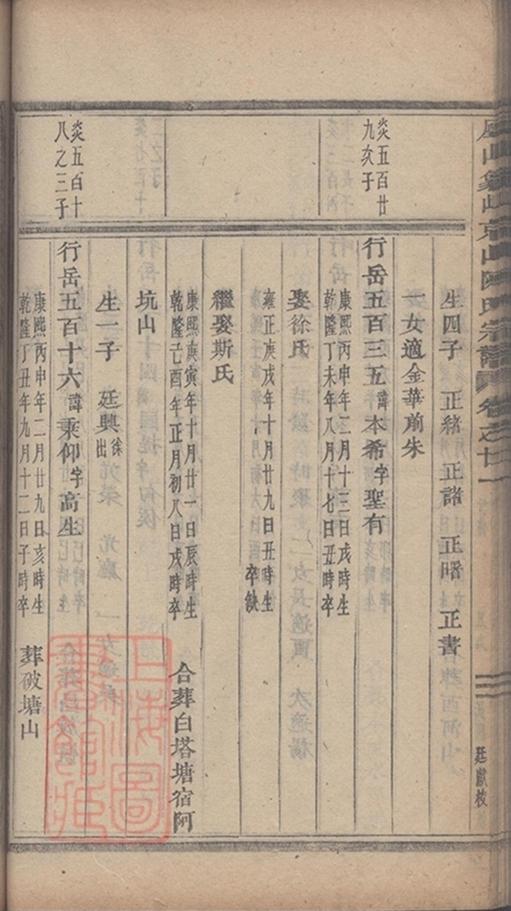 山陳氏宗譜 卷之廿一
廷獻校
生四子 正緒 正諧 正曙 正書
一女適金華前朱
炎五百廿
九次子
行岳五百三五諱本希字聖有
康熙丙申年二月十三日戌時生
乾隆丁未年八月十七日丑時卒
娶徐氏
雍正庚戌年十月廿九日丑時生
卒缺
繼娶斯氏
康熙庚寅年十月廿一日辰時生
乾隆己酉年正月初八日戌時卒
合葬白塔塘宿阿
坑山
生一子 廷興徐出
炎五百十
八之三子
行岳五百十六諱乘仰字高生
康熙丙申年二月廿九日亥時生
乾隆丁丑年九月十二日子時卒
葬破塘山
上海圖
書館藏